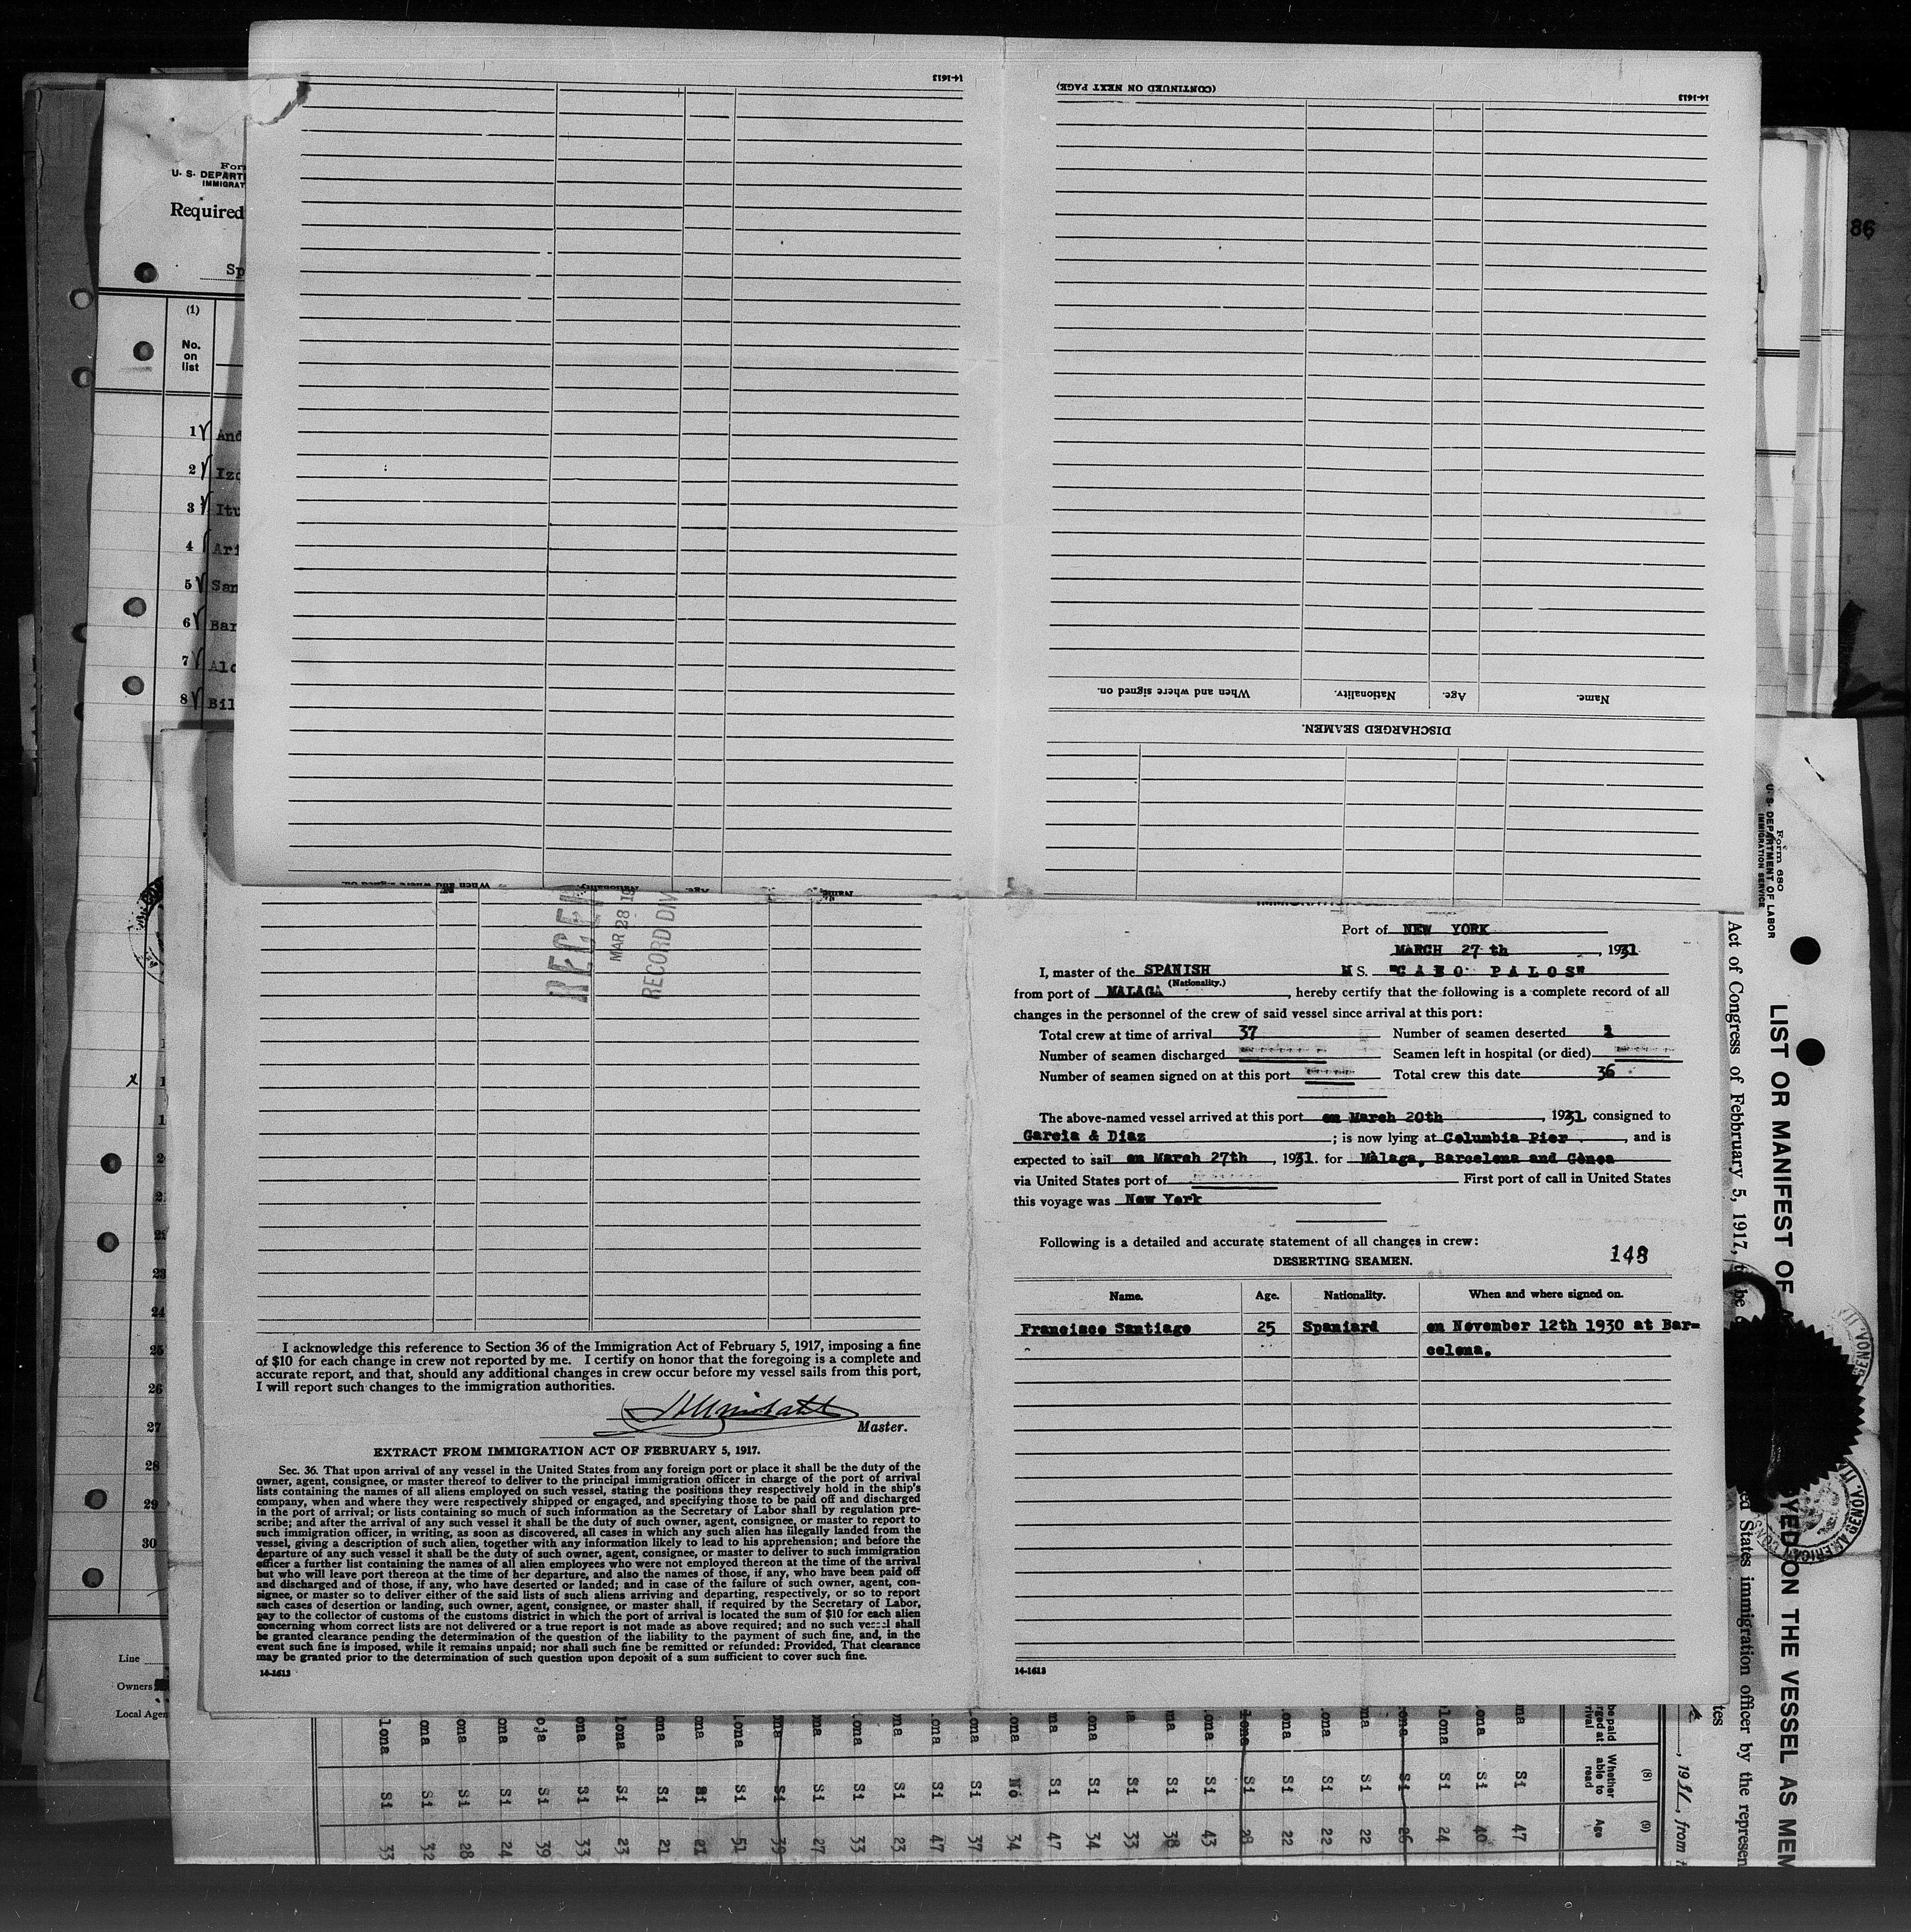 14-1613
(CONTINUED ON NEXT PAGE)
14-1613
When and where signed on.
Nationality.
Age.
Name.
DISCHARGED SEAMEN.
U. S. DEPART
IMMIGRAT
Required
Sp
(1)
No.
on
list
1 And
2 Izo
3 Itu
4 Ari
5 San
6 Bar
7 Alo
8 Bil
86
When and where signed on
Nationality.
Age.
Name.
MAR 28 19
RECORD DIV
Port of NEW YORK
MARCH 27 th, 1931
I, master of the SPANISH M S. "CABO PALOS"
(Nationality.)
from port of MALAGA, hereby certify that the following is a complete record of all
changes in the personnel of the crew of said vessel since arrival at this port:
Total crew at time of arrival 37 Number of seamen deserted
Number of seamen discharged Seamen left in hospital (or died)
Number of seamen signed on at this port Total crew this date 36
The above-named vessel arrived at this port on March 20th, 1931, consigned to
Garcia & Diaz; is now lying at Columbia Pier, and is
expected to sail on March 27th, 1931. for Màlaga, Barcelona and Gènoa
via United States port of First port of call in United States
this voyage was New York
Following is a detailed and accurate statement of all changes in crew:
148
DESERTING SEAMEN.
Name. Age. Nationality. When and where signed on.
Francisco Santiago 25 Spaniard on November 12th 1930 at Bar=
celona.
14-1613
I acknowledge this reference to Section 36 of the Immigration Act of February 5, 1917, imposing a fine
of $10 for each change in crew not reported by me. I certify on honor that the foregoing is a complete and
accurate report, and that, should any additional changes in crew occur before my vessel sails from this port,
I will report such changes to the immigration authorities.
Master.
EXTRACT FROM IMMIGRATION ACT OF FEBRUARY 5, 1917.
Sec. 36. That upon arrival of any vessel in the United States from any foreign port or place it shall be the duty of the
owner, agent, consignee, or master thereof to deliver to the principal immigration officer in charge of the port of arrival
lists containing the names of all aliens employed on such vessel, stating the positions they respectively hold in the ship's
company, when and where they were respectively shipped or engaged, and specifying those to be paid off and discharged
in the port of arrival; or lists containing so much of such information as the Secretary of Labor shall by regulation pre-
scribe; and after the arrival of any such vessel it shall be the duty of such owner, agent, consignee, or master to report to
such immigration officer, in writing, as soon as discovered, all cases in which any such alien has illegally landed from the
vessel, giving a description of such alien, together with any information likely to lead to his apprehension; and before the
departure of any such vessel it shall be the duty of such owner, agent, consignee, or master to deliver to such immigration
officer a further list containing the names of all alien employees who were not employed thereon at the time of the arrival
but who will leave port thereon at the time of her departure, and also the names of those, if any, who have been paid off
and discharged and of those, if any, who have deserted or landed; and in case of the failure of such owner, agent, con-
signee, or master so to deliver either of the said lists of such aliens arriving and departing, respectively, or so to report
such cases of desertion or landing, such owner, agent, consignee, or master shall, if required by the Secretary of Labor,
pay to the collector of customs of the customs district in which the port of arrival is located the sum of $10 for each alien
concerning whom correct lists are not delivered or a true report is not made as above required; and no such vessel shall
be granted clearance pending the determination of the question of the liability to the payment of such fine, and, in the
event such fine is imposed, while it remains unpaid; nor shall such fine be remitted or refunded: Provided, That clearance
may be granted prior to the determination of such question upon deposit of a sum sufficient to cover such fine.
14-1613
23
24
25
26
27
28
29
30
Line
Owners
Local Agen
Form 680
U. S. DEPARTMENT OF LABOR
IMMIGRATION SERVICE
LIST OR MANIFEST OF A YED ON THE VESSEL AS MEM
Act of Congress of February 5, 1917, be ed States immigration officer by the represen
tes
, 1931, from
(8) Whether able to read
(9) Age
ma Si 47
ona Si 40
lona Si 24
ona Si 26
ma Si 22
ona Si 22
ona Si 22
lona Si 28
ona Si 43
ma Si 38
ma Si 33
ona Si 34
ma Si 47
ona No 34
ona Si 37
ona Si 47
ma Si 23
ona Si 33
ma Si 27
ma Si 39
lona Si 51
ona Si 21
ona Si 21
lona Si 23
ona Si 33
oja Si 39
ona Si 24
ona Si 28
ona Si 32
lona Si 33